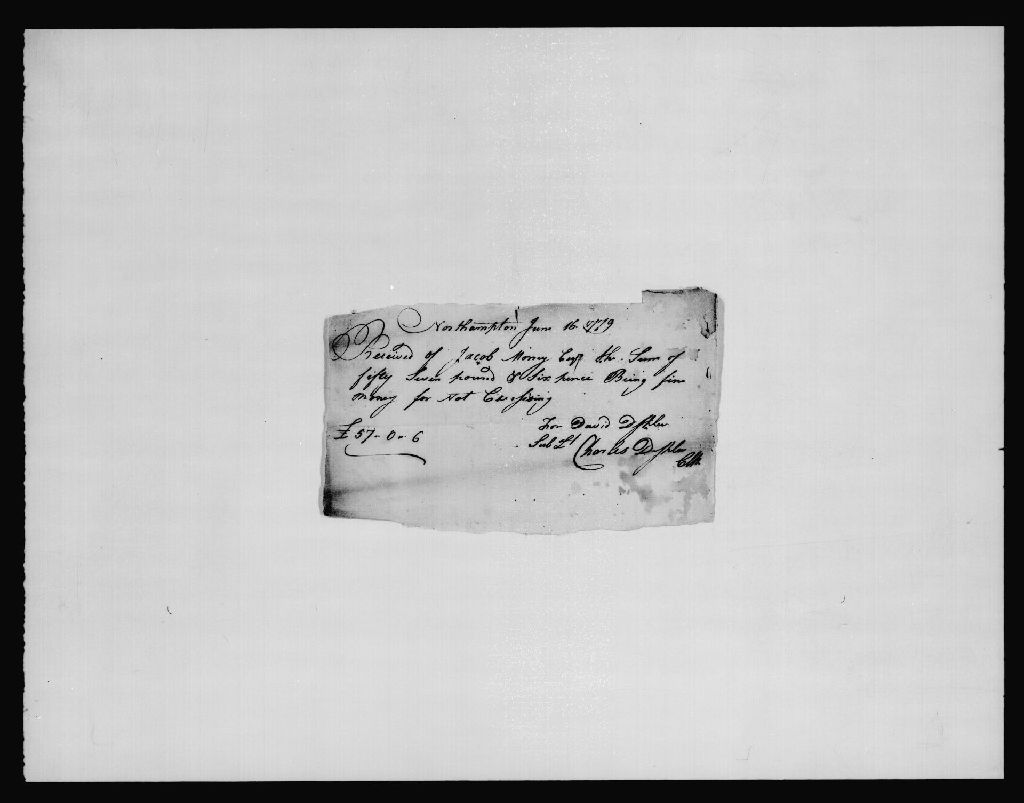 Northampton June 16 1779
Received of Jacob Morry Esqr the Sum of
fifty Seven pound & Six pence Being fine
Money for Not Excersising
£ 57-0-6
For David Dshler
Sub Lt Charles Dshler
Clk